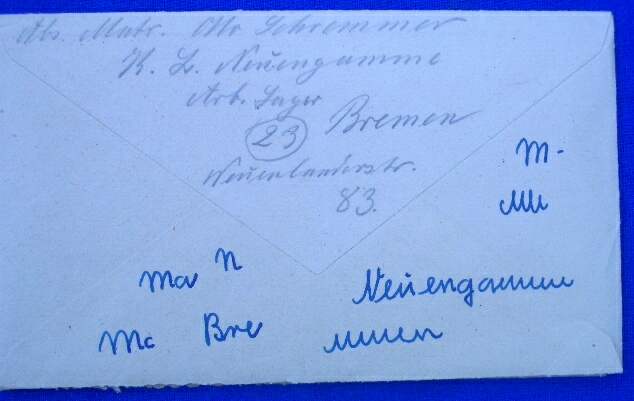 Abs. Matr. Schrommer
K. L. Neuengamme
Arb. Lager
23 Bremen
Neuenlanderstr.
83.
M-
Ma n
Neuengamme
Mc Bre